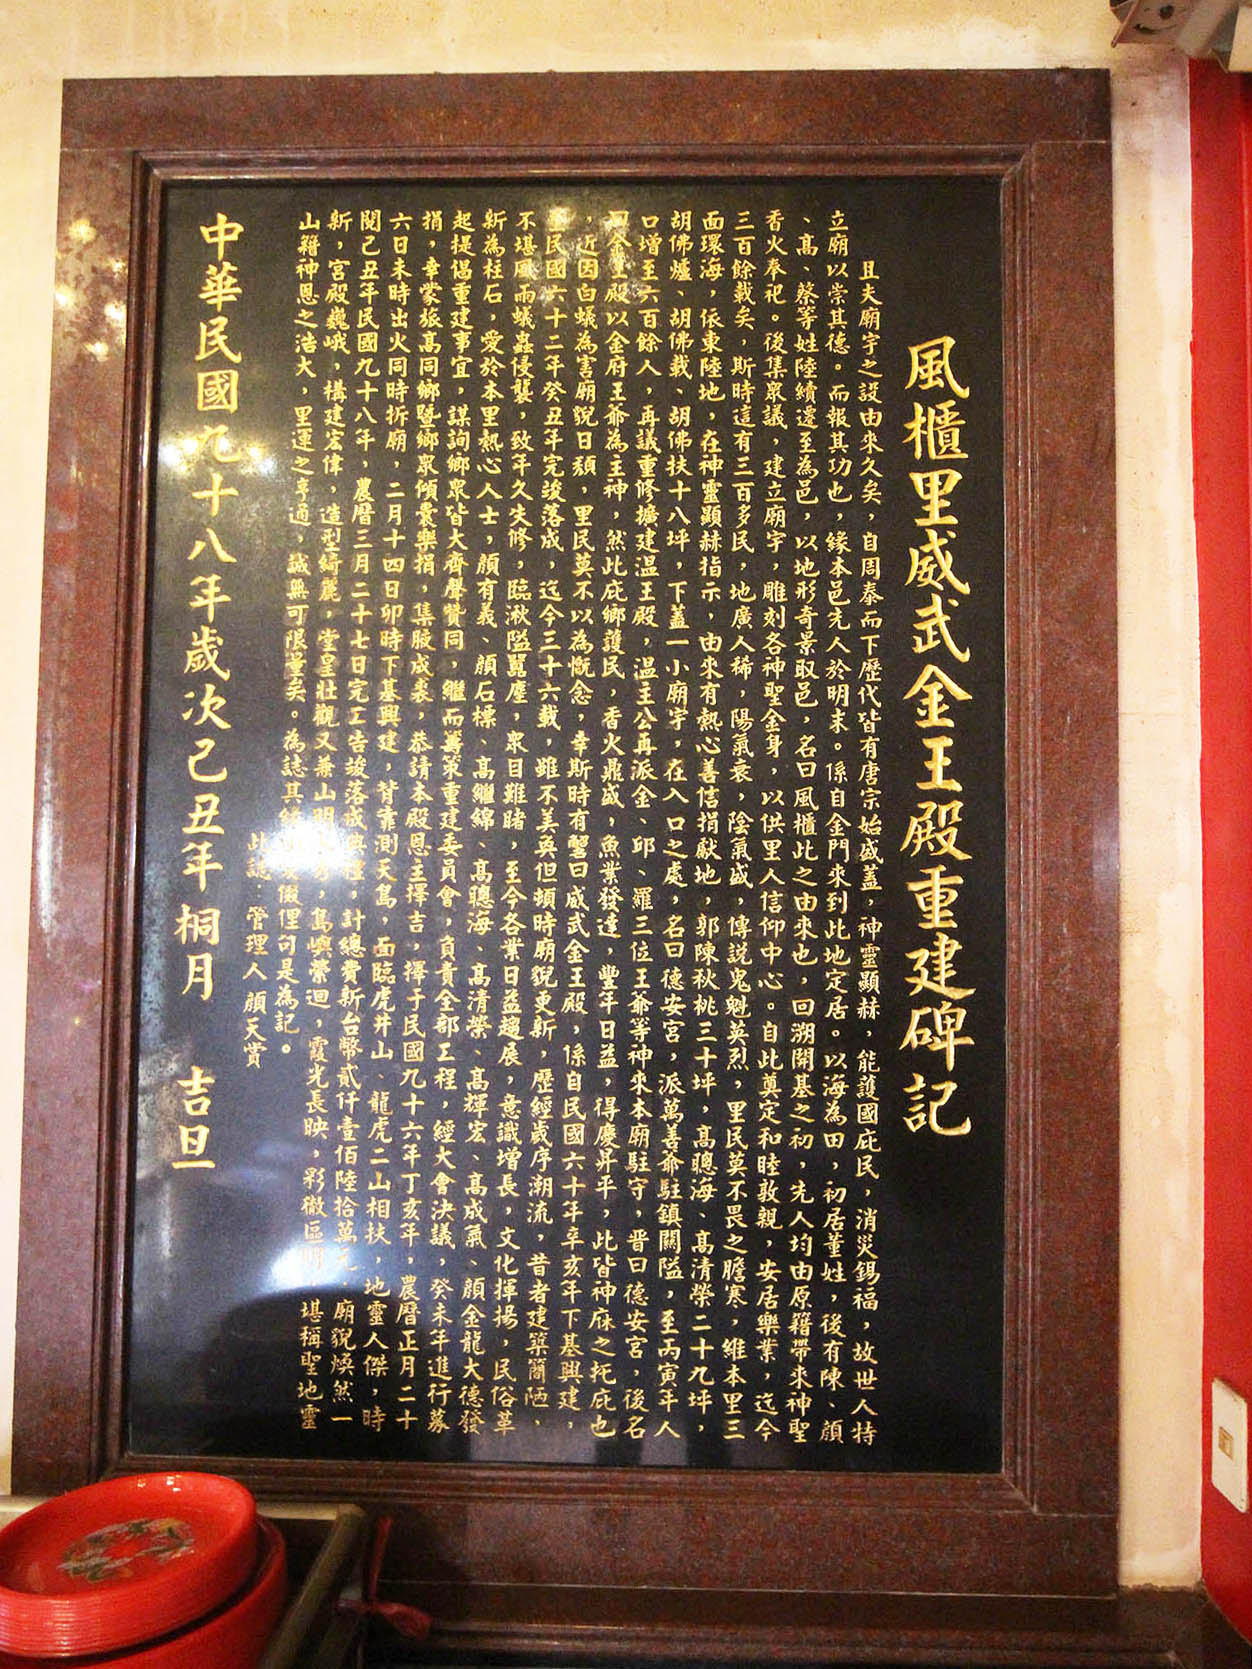 風櫃里威武金王殿重建碑記
且夫廟宇之設由來久矣，自周秦而下歷代皆有唐宗始盛蓋，神靈顯赫，能護國庇民，消災錫福，故世人特
立廟以崇其德。而報其功也，緣本邑先人於明末。係自金門來到此地定居。以海為田，初居董姓，後有陳、顏
、高、蔡等姓陸續遷至為邑，以地形奇景取邑，名曰風櫃此之由來也，回溯開基之初，先人均由原籍帶來神聖
香火奉祀。後集眾議，建立廟宇，雕刻各神聖金身，以供里人信仰中心。自此奠定和睦敦親，安居樂業，迄今
三百餘載矣，斯時這有三百多民，地廣人稀，陽氣衰，陰氣盛，傳說鬼魁英烈，里民莫不畏之膽寒，維本里三
面環海，依東陸地，在神靈顯赫指示，由來有熱心善信捐獻地，郭陳秋桃三十坪，高聰海、高清榮二十九坪，
胡佛爐、胡佛載、胡佛扶十八坪，下蓋一小廟宇，在入口之處，名曰德安宮，派萬善爺駐鎮關隘，至丙寅年人
口增至六百餘人，再議重修擴建溫王殿，溫王公再派金、邱、羅三位王爺等神來本廟駐守，晋曰德安宮，後名
曰金王殿以金府王爺為主神，然此庇鄉護民，香火鼎盛，魚業發達，豐年日益，得慶昇平，此皆神庥之托庇也
，近因白蟻為害廟貌日頹，里民莫不以為慨念，幸斯時有諬曰威武金王殿，係自民國六十年辛亥年下基興建，
至民國六十二年癸丑年完竣落成，迄今三十六載，雖不美英但頓時廟貌更新，歷經歲序潮流，昔者建築簡陋，
不堪風雨蟻蟲侵襲，致年久失修，臨湫隘囂塵，眾目雖睹，至今各業日益趨展，意識增長，文化揮揚，民俗革
新為柱石，爰於本里熱心人士，顏有義、顏石標、高繼錦、高聰海、高清榮、高輝宏、高成氣、顏金龍大德發
起提倡重建事宜，謀詢鄉眾皆大齊聲贊同，繼而籌策重建委員會，負責全部工程，經大會決議，癸未年進行募
捐，幸蒙旅高同鄉暨鄉眾傾囊樂捐，集腋成裘，恭請本殿恩主擇吉，擇于民國九十六年丁亥年，農曆正月二十
六日未時出火同時拆廟，二月十四日卯時下基興建，背靠測天島，面臨虎井山、龍虎二山相扶，地靈人傑，時
閱己丑年民國九十八年，農曆三月二十七日完工告竣落成典禮，計總費新台幣貳仟壹佰陸拾萬元，廟貌煥然一
新，宮殿巍峨，構建宏偉，造型綺麗，堂皇壯觀又兼山明，島嶼縈迴，霞光長映，彩徹區明，堪稱聖地靈
山籍神恩之浩大，里運之亨通，誠無可限量矣。為誌其俚句是為記。
此誌：管理人 顏天賞
中華民國九十八年歲次己丑年 桐月 吉旦